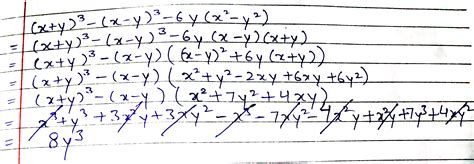 (x+y)³-(x-y)³-6y(x²-y²)
= (x+y)³-(x-y)³-6y(x-y)(x+y)
= (x+y)³-(x-y)((x-y)²+6y(x+y))
= (x+y)³-(x-y)(x²+y²-2xy+6xy+6y²)
= (x+y)³-(x-y)(x²+7y²+4xy)
= x³+y³+3x²y+3xy²-x³-7xy²-4x²y+x²y+7y³+4xy²
= 8y³